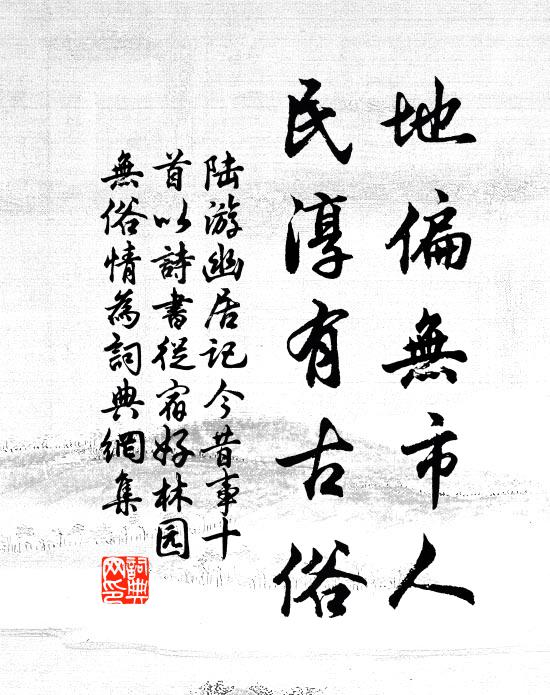 地偏無市人
民淳有古俗
陆游幽居记今昔事十
首以詩書從宿好林园
無俗情為詞典網集